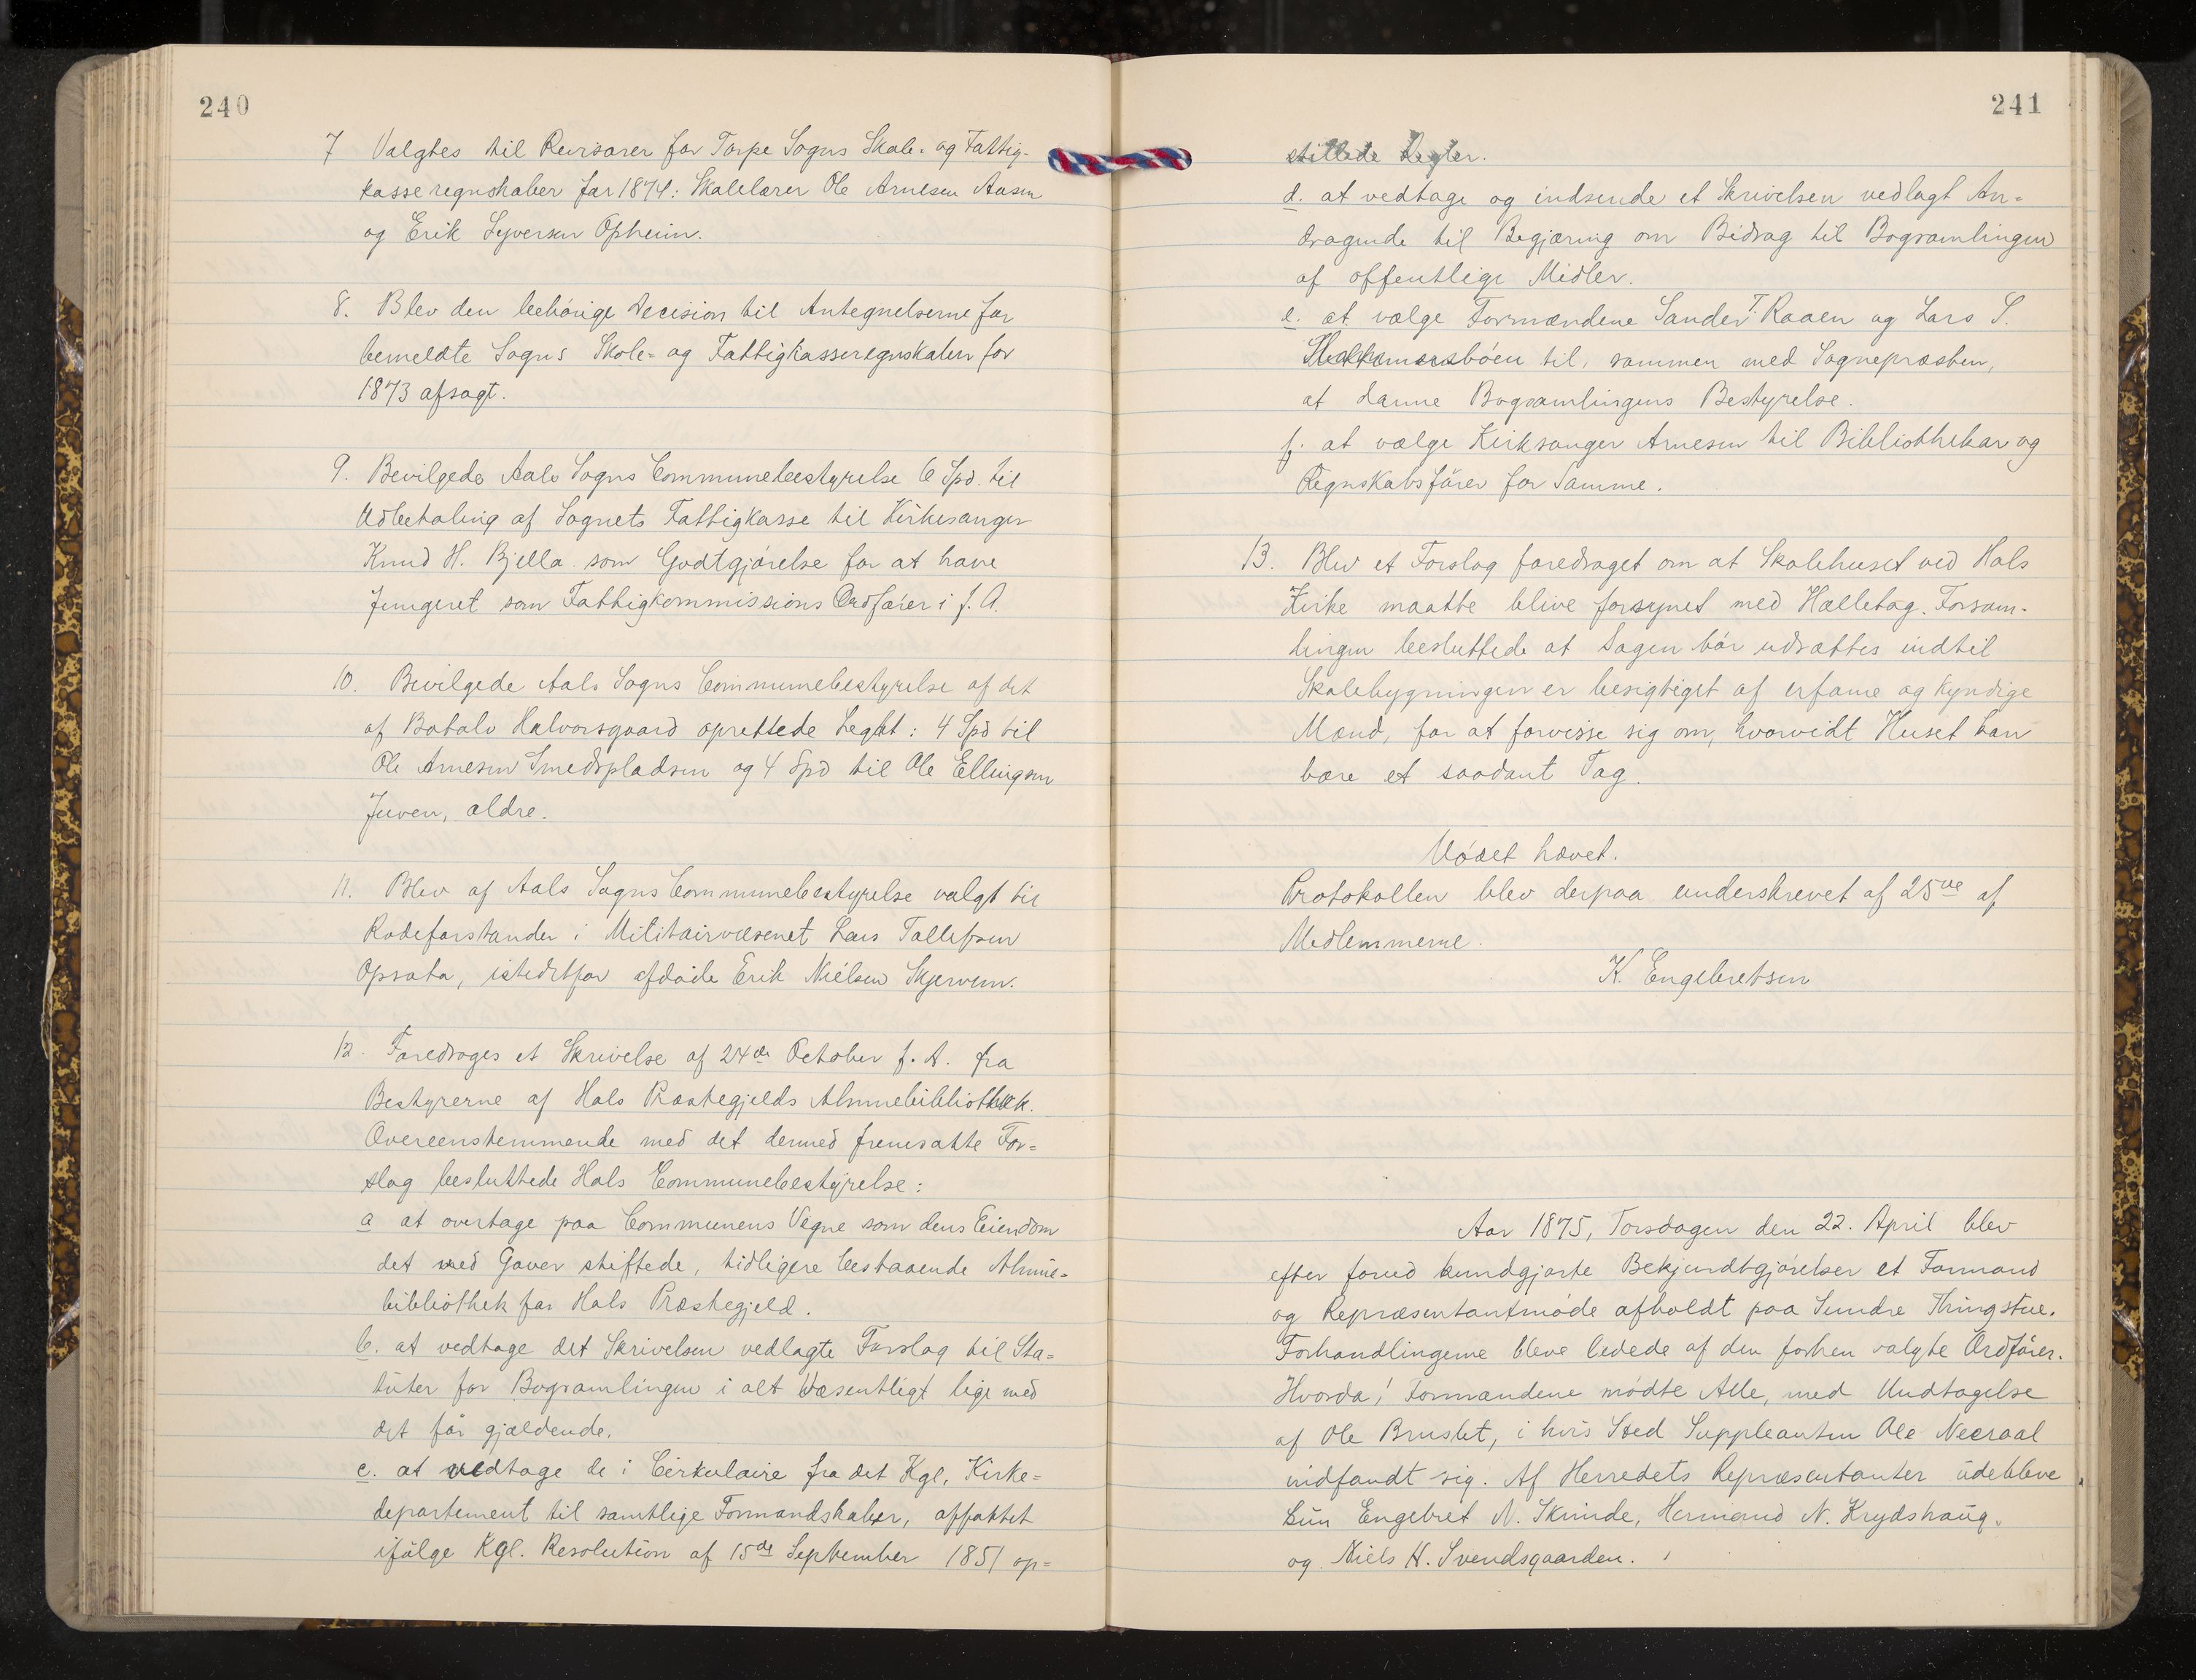 240
7 Valgtes til Revisorer for Torpe Sogns Skole- og Fattig-
kasseregnskaber for 1874: Skolelærer Ole Arnesen Aasen
og Erik Syversen Opheim.
8. Blev den behörige Decision til Antegnelserne for
bemeldte Sogns Skole- og Fattigkasseregnskaber for
1873 afsagt.
9. Bevilgede Aals Sogns Communebestyrelse 6 Spd. til
Udbetaling af Sognets Fattigkasse til Kirkesanger
Knud H. Bjella som Godtgjörelse for at have
fungeret som Fattigkommissions Ordförer i f. A.
10. Bevilgede Aals Sogns Communebestyrelse af det
af Botolv Halvorsgaard oprettede Legat: 4 Spd til
Ole Arnesen Smedspladsen og 4 Spd til Ole Ellingsen
Juven, ældre.
11. Blev af Aals Sogns Communebestyrelse valgt til
Rodeforstander i Militairvæsenet Lars Tollefsen
Opsata, istedetfor afdöde Erik Nielsen Skjervem.
12. Foredroges et Skrivelse af 24de October f. A. fra
Bestyrerne af Hols Præstegjelds Almuebibliothek.
Overeenstemmende med det dermed fremsatte For=
slag besluttede Hols Communebestyrelse:
a at overtage paa Communens Vegne som dens Eiendom
det ved Gaver stiftede, tidligere bestaaende Almue=
bibliothek for Hols Præstegjeld.
b. at vedtage det Skrivelsen vedlagte Forslag til Sta=
tuter for Bogsamlingen i alt Væsentligt lige med
det för gjældende.
c. at vedtage de i Cirkulaire fra det Kgl. Kirke=
departement til samtlige Formandskaber, affattet
ifölge Kgl. Resolution af 15de September 1851 op=
241
stillede Regler.
d. at vedtage og indsende et Skrivelsen vedlagt An=
dragende til Begjæring om Bidrag til Bogsamlingen
af offentlige Midler.
e. at vælge Formændene Sander T. Raaen og Lars S.
til, sammen med Sognepræsten,
at danne Bogsamlingens Bestyrelse.
f. at vælge Kirksanger Arnesen til Bibliothekar og
Regnskabsförer for Samme.
13. Blev et Forslag foredraget om at Skolehuset ved Hols
Kirke maatte blive forsynet med Hælletag. Forsam-
lingen besluttede at Sagen bör udsættes indtil
Skolebygningen er besigtiget af erfarne og kyndige
Mænd, for at forvisse sig om, hvorvidt Huset kan
bære et saadant Tag.
Mödet hævet.
Protokollen blev derpaa underskrevet af 25ve af
Medlemmerne.
K. Engebretsen
Aar 1875, Torsdagen den 22. April blev
efter forud kundgjorte Bekjendtgjörelser et Formand
og Repræsentantmöde afholdt paa Sundre Thingstue.
Forhandlingerne bleve ledede af den forhen valgte Ordförer.
Hvorda! Formændene mödte Alle, med Undtagelse
af Ole Bruslet, i hvis Sted Suppleanten Ole Neeraal
indfandt sig. Af Herredets Repræsentanter udebleve
kun Engebret N. Skrinde, Hermand N. Krydshaug
og Niels H. Svendsgaarden.